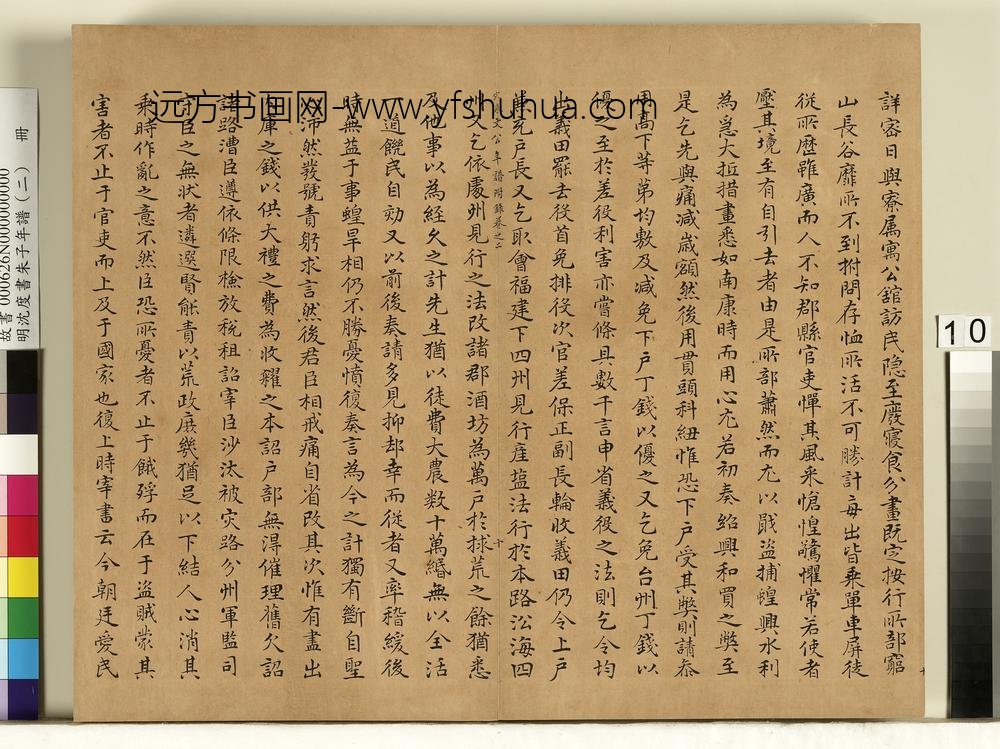 詳密日與寮属寓公舘訪民隐至廢寢食分畫既定按行所部窮
山長谷靡所不到拊問存恤所活不可勝計每出皆乘單車屏徒
從所歷雖廣而人不知郡縣官吏憚其風采愴惶驚懼常若使者
壓其境至有自引去者由是所部肅然而尤以戢盗捕蝗興水利
為急大抵措畫悉如南康時而用心尤若初奏紹興和買之獘至
是乞先與痛减嵗額然後用貫頭科紐惟恐下戶受其獘則請叅
用髙下等苐均敷及减免下戶丁錢以優之又乞免台州丁錢以
優之至於差役利害亦嘗條具數千言申省義役之法則乞令均
出義田罷去役首免排役次官差保正副長輪收義田仍令上戶
兼充戶長又乞取會福建下四州見行產塩法行於本路沿海四
文公年譜附錄卷之二
十
州又乞依處州見行之法改諸郡酒坊為萬戶於捄荒之餘猶悉
及他事以為経久之計先生猶以徒費大農数十萬緡無以全活
一道饑民自劾又以前後奏請多見抑却幸而従者又率稽緩後
時無益于事蝗旱相仍不勝憂憤復奏言為今之計獨有斷自聖
心沛然發號責躬求言然後君臣相戒痛自省改其次惟有盡出
内庫之錢以供大禮之費為收糴之本詔戶部無淂催理舊欠詔
諸路漕臣遵依條限檢放税租詔宰臣沙汰被灾路分州軍監司
守臣之無状者遴選賢能責以荒政庶幾猶足以下結人心消其
乘時作亂之意不然臣恐所憂者不止于餓殍而在于盗賊蒙其
害者不止于官吏而上及于國家也復上時宰書云今朝廷愛民
远方书画网-www.yfshuhua.com
故書 000626N000000000
明沈度書朱子年譜(二) 冊
10